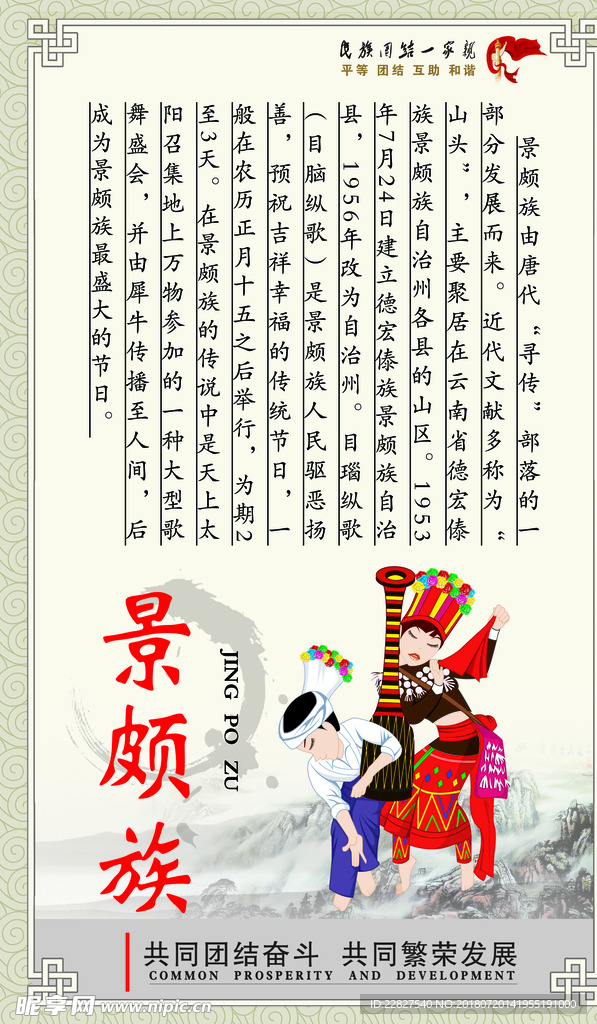 民族团结一家亲
平等 团结 互助 和谐
景颇族由唐代“寻传”部落的一
部分发展而来。近代文献多称为“
山头”，主要聚居在云南省德宏傣
族景颇族自治州各县的山区。1953
年7月24日建立德宏傣族景颇族自治
县，1956年改为自治州。目瑙纵歌
（目脑纵歌）是景颇族人民驱恶扬
善，预祝吉祥幸福的传统节日，一
般在农历正月十五之后举行，为期2
至3天。在景颇族的传说中是天上太
阳召集地上万物参加的一种大型歌
舞盛会，并由犀牛传播至人间，后
成为景颇族最盛大的节日。
景颇族
JING PO ZU
共同团结奋斗 共同繁荣发展
COMMON PROSPERITY AND DEVELOPMENT
昵享网 www.nipic.cn
ID:22827540 NO:20180720141955191000